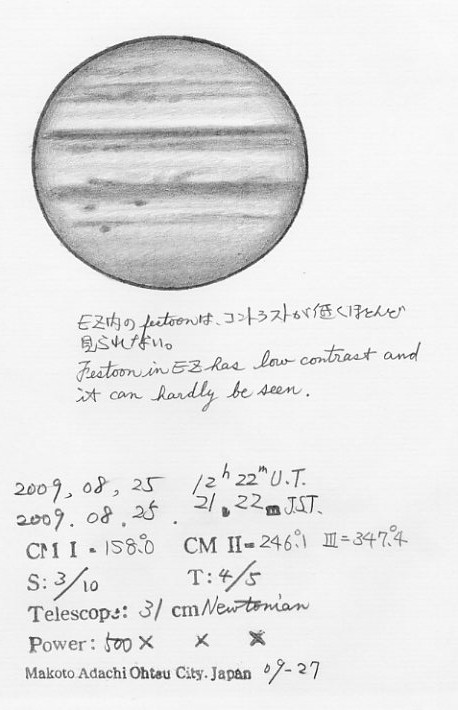 EZ内のfestoonは、コントラストが低くほとんど
見られない。
Festoon in EZ has low contrast and
it can hardly be seen.
2009, 08, 25 12h 22m U.T.
2009. 08. 25. 21. 22m J.S.T.
CM I = 158.°0 CM II = 246.°1 III = 347.°4
S: 3/10 T: 4/5
Telescope: 31 cm Newtonian
Power: 500 × × ×
Makoto Adachi Ohtsu City. Japan 09-27